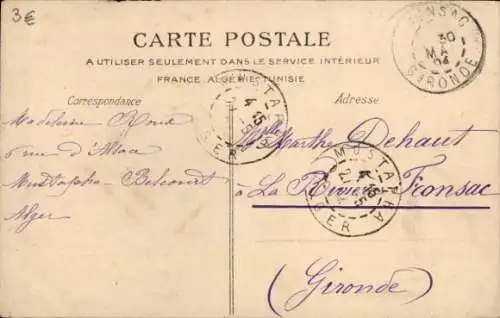 3€
CARTE POSTALE
A UTILISER SEULEMENT DANS LE SERVICE INTÉRIEUR
FRANCE, ALGÉRIE-TUNISIE
Correspondance
Adresse
Madeleine
rue d'
Mustapha-Belcourt
Alger
Mlle Marthe Dehaut
à La Rivière Fronsac
(Gironde)
FRONSAC
30
MA
04
GIRONDE
MUSTAPHA
ALGER
MUSTAPHA
ALGER